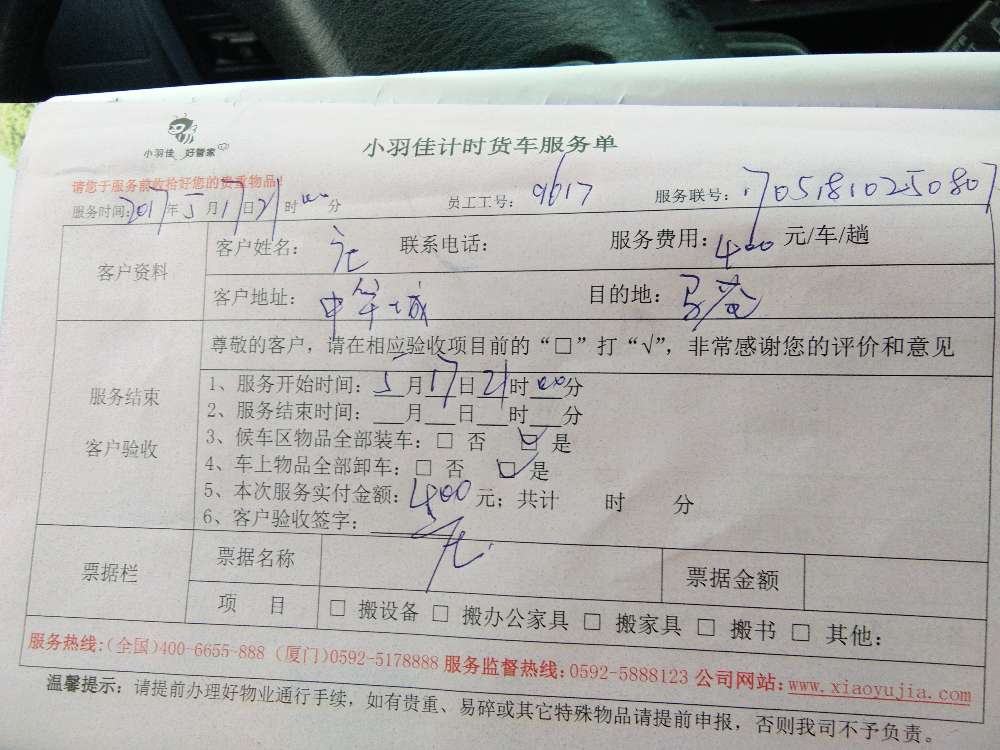 小羽佳 好管家
小羽佳计时货车服务单
请您于服务前收拾好您的贵重物品！
服务时间：2017年5月17日21时00分 员工工号：9617 服务联号：17051810250807
客户资料
客户姓名： 联系电话： 服务费用：400元/车/趟
客户地址：中华城 目的地：
尊敬的客户，请在相应验收项目前的“□”打“√”，非常感谢您的评价和意见
服务结束
客户验收
1、服务开始时间：5月17日21时00分
2、服务结束时间：___月___日___时___分
3、候车区物品全部装车：□ 否 ☑ 是
4、车上物品全部卸车：□ 否 ☑ 是
5、本次服务实付金额：400元；共计 时 分
6、客户验收签字：
票据栏
票据名称 票据金额
项 目 □ 搬设备 □ 搬办公家具 □ 搬家具 □ 搬书 □ 其他：
服务热线:(全国)400-6655-888 (厦门)0592-5178888 服务监督热线:0592-5888123 公司网站:www.xiaoyujia.com
温馨提示：请提前办理好物业通行手续，如有贵重、易碎或其它特殊物品请提前申报，否则我司不予负责。